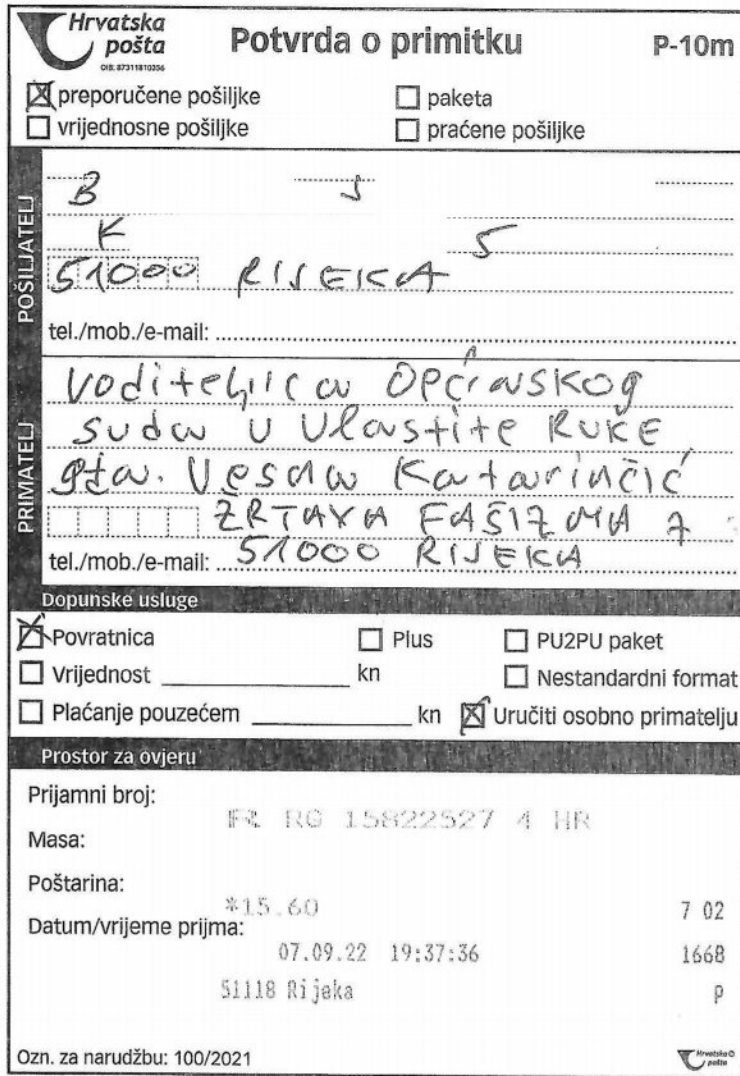 Hrvatska
pošta
OIB: 87311810356
Potvrda o primitku
P-10m
preporučene pošiljke
paketa
vrijednosne pošiljke
praćene pošiljke
POŠILJATELJ
B J
K S
51000 RIJEKA
tel./mob./e-mail:
PRIMATELJ
Voditeljica Općinskog
suda u Vlastite RUKE
gđa. Vesna Katarinčić
ŽRTAVA FAŠIZMA 7
tel./mob./e-mail: 51000 RIJEKA
Dopunske usluge
Povratnica
Plus
PU2PU paket
Vrijednost kn
Nestandardni format
Plaćanje pouzećem kn
Uručiti osobno primatelju
Prostor za ovjeru
Prijamni broj:
RG 15822527 4 HR
Masa:
Poštarina:
*15.60
7 02
Datum/vrijeme prijma:
07.09.22 19:37:36
1668
51118 Rijeka
p
Ozn. za narudžbu: 100/2021
Hrvatska
pošta